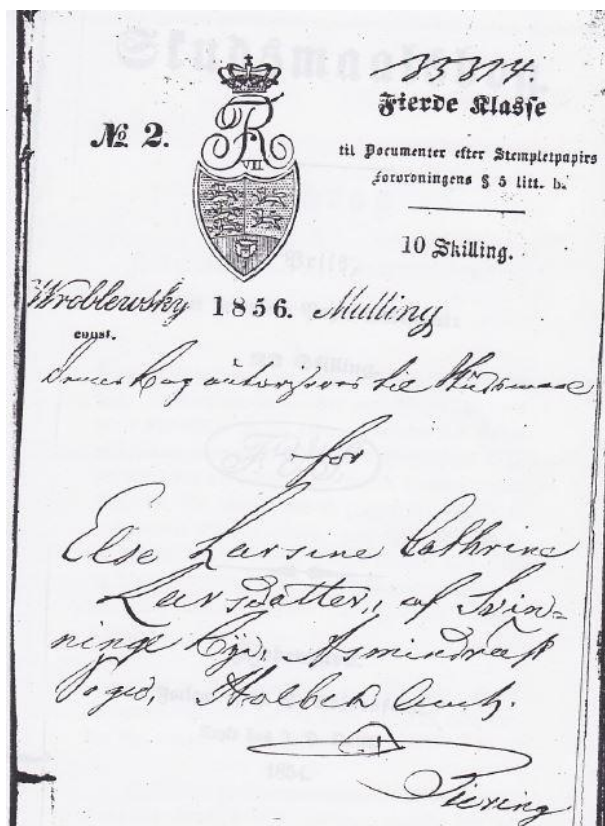 35814.
Fierde Klasse
№ 2.
FR
VII
til Documenter efter Stempletpapirs
forordningens § 5 litt. b.
10 Skilling.
Wroblewsky 1856. Mulling
const.
Denne Bog autoriseres til Skudsmaal
for
Else Larsine Cathrine
Larsdatter, af Svin-
ninge Bye, Asmindrup
Sogn, Holbek Amt.